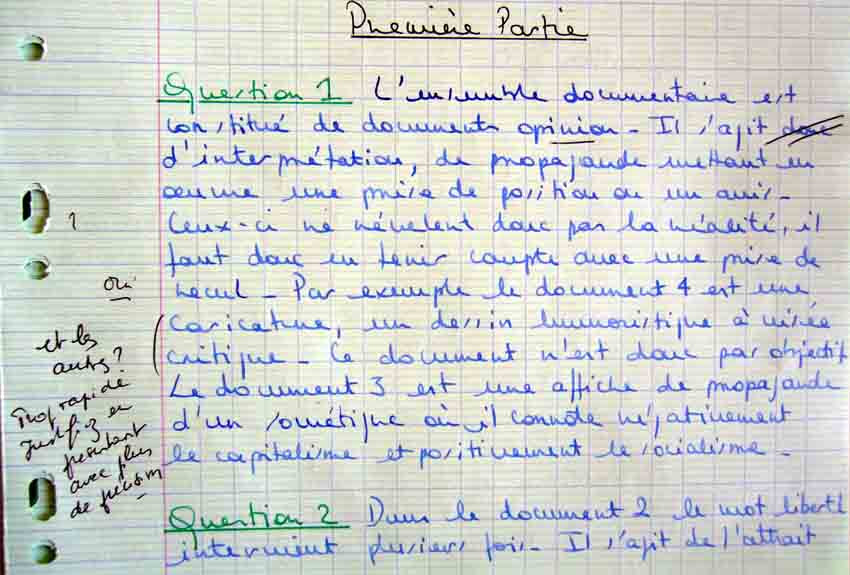 Première Partie
Question 1 L'ensemble documentaire est
constitué de documents opinion - Il s'agit donc
d'interprétation, de propagande mettant en
œuvre une prise de position ou un avis -
Ceux-ci ne révèlent donc pas la réalité, il
faut donc en tenir compte avec une prise de
recul - Par exemple le document 4 est une
caricature, un dessin humoristique à visée
critique - Ce document n'est donc pas objectif
Le document 3 est une affiche de propagande
d'un soviétique où il connote négativement
le capitalisme et positivement le socialisme -
Question 2 Dans le document 2 le mot liberté
intervient plusieurs fois - Il s'agit de l'attrait
?
oui
et les
autres?
Trop rapide
Justifiez en
présentant
avec plus
de précision